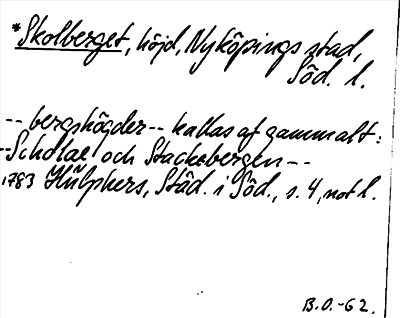 *Skolberget, höjd, Nyköpings stad,
Söd. l.
-- bergshögder -- kallas af gammalt:
--Scholae och Stacksbergen --
1783 Hülphers, Städ. i Söd., s. 4, not l.
B.O.-62.